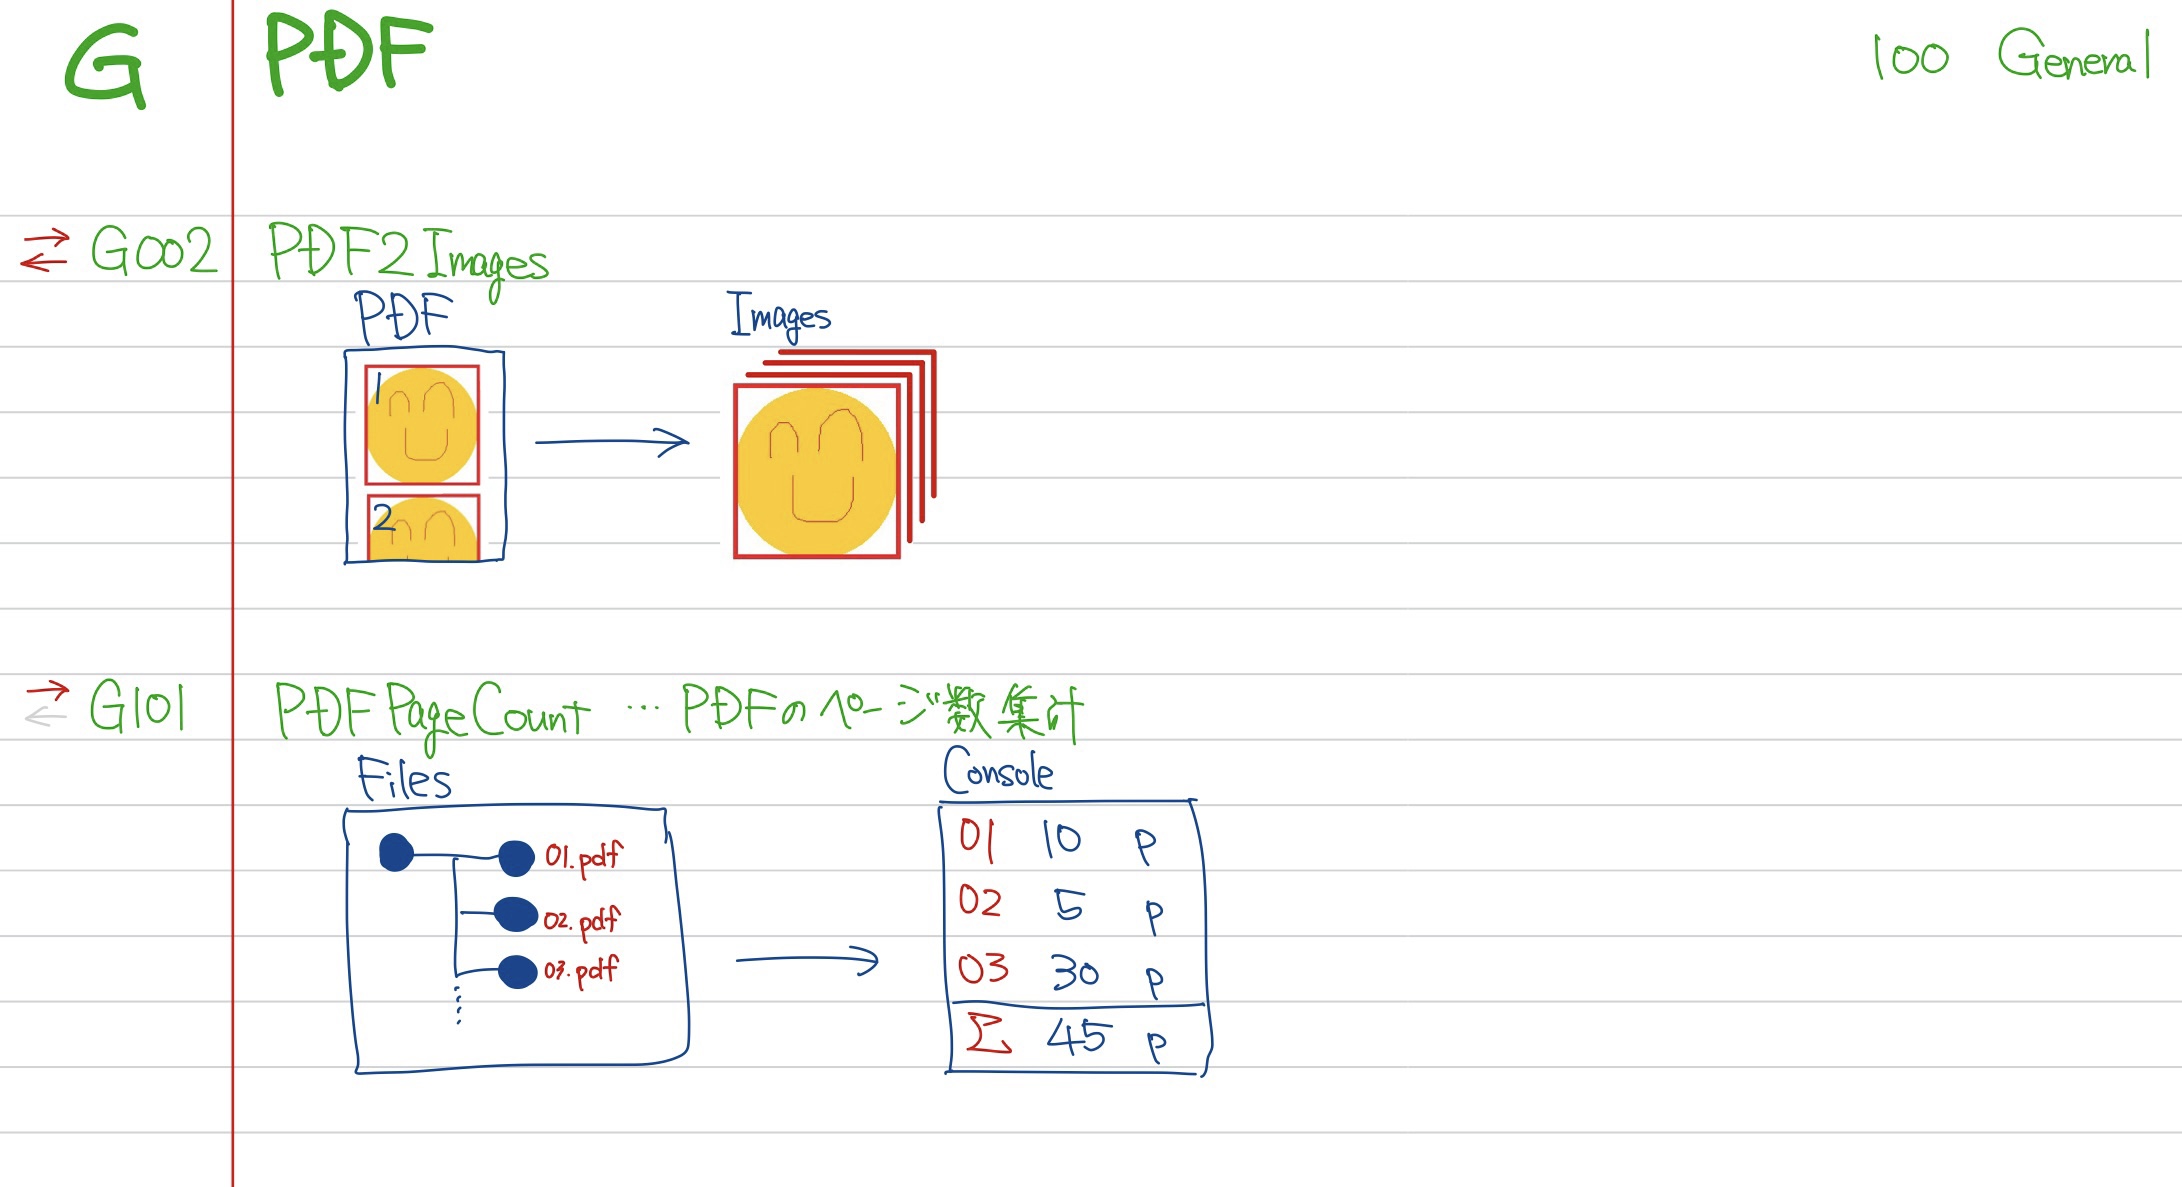 G PDF 100 General
G002 PDF2Images
PDF Images
1
2
G101 PDFPageCount … PDFのページ数集計
Files Console
01.pdf
02.pdf
03.pdf
01 10 p
02 5 p
03 30 p
Σ 45 p